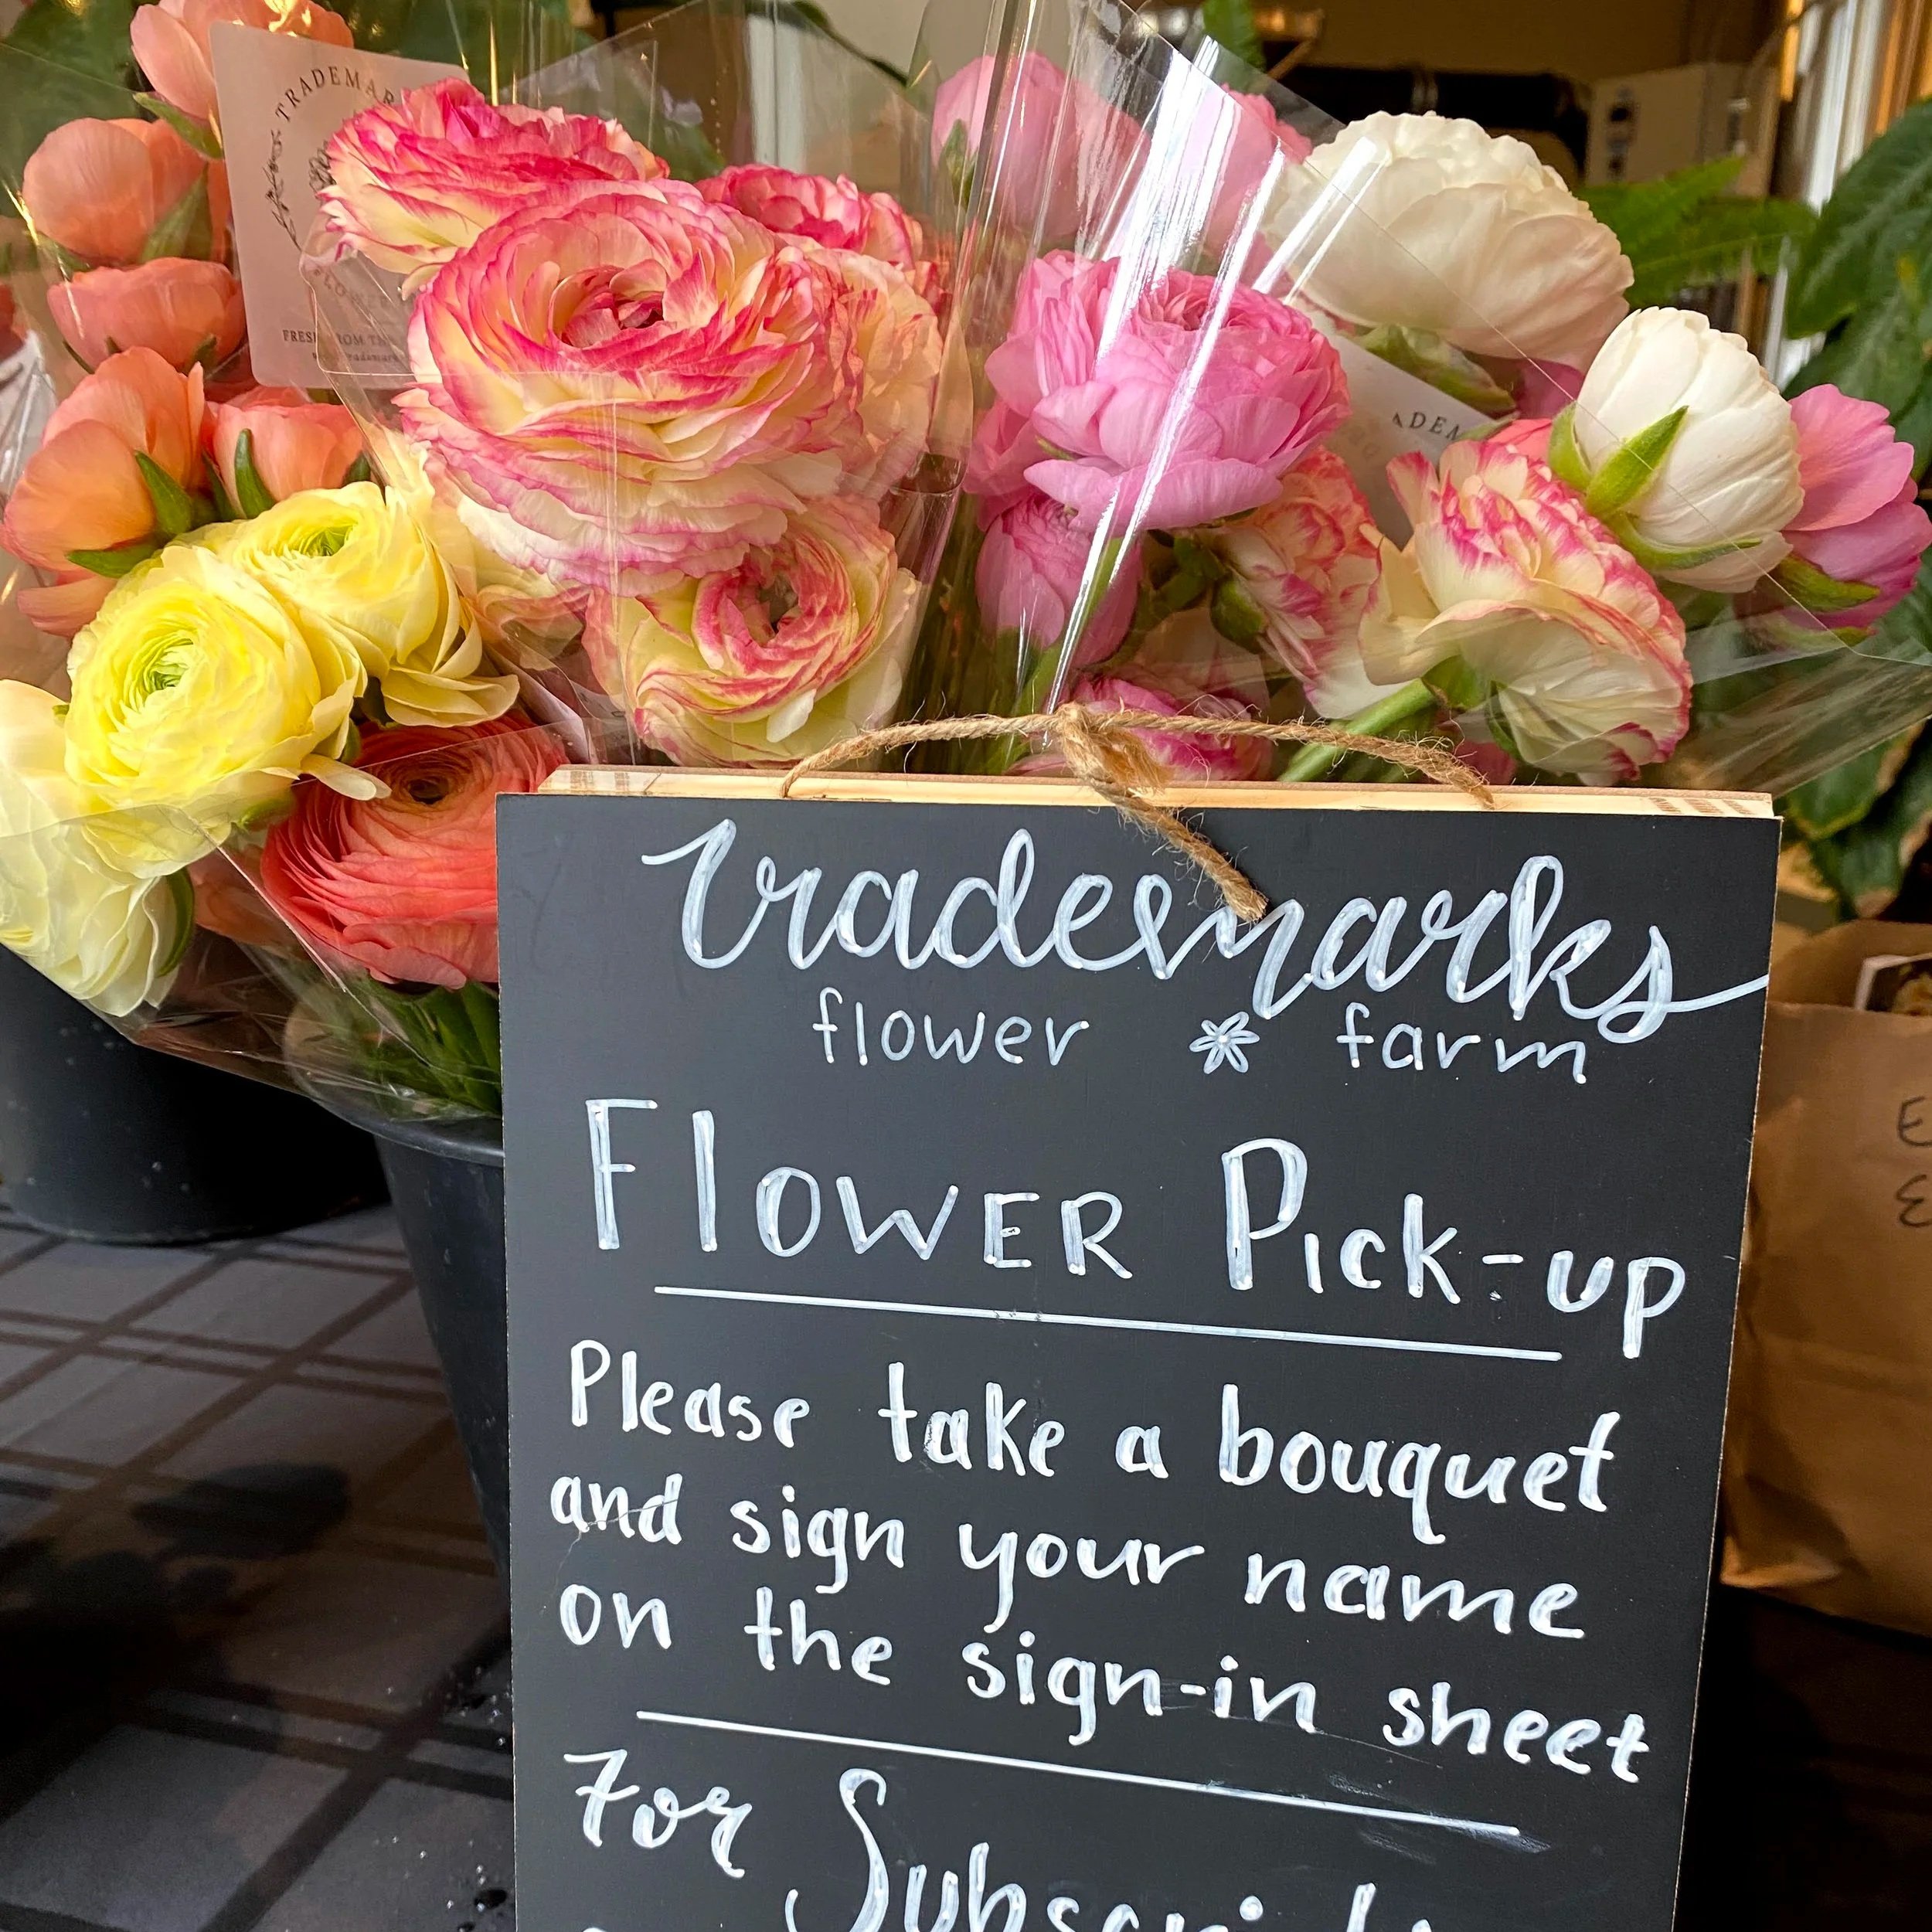 TRADEMAR
FRESH FROM THE
ADEM
trademarks
flower farm
FLOWER PICK-UP
Please take a bouquet
and sign your name
on the sign-in sheet
For